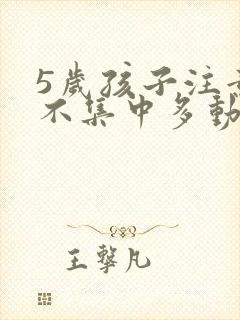 5歲孩子注
不集中多動
王擎凡